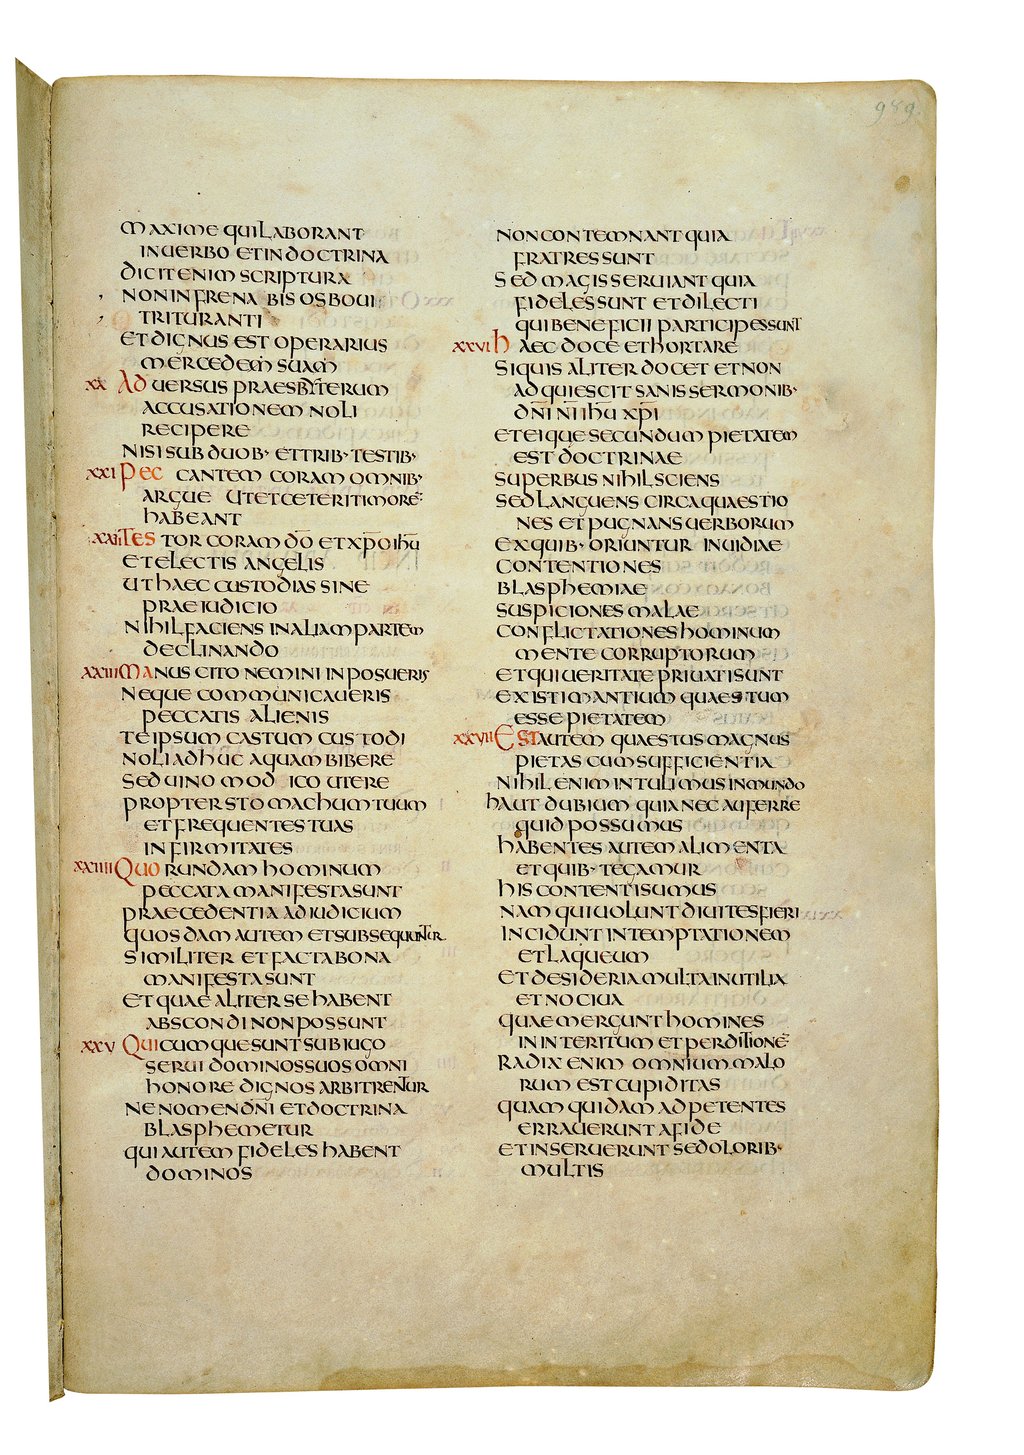 989.
MAXIME QUI LABORANT
IN UERBO ET IN DOCTRINA
DICIT ENIM SCRIPTURA
NON INFRENABIS OS BOUI
TRITURANTI
ET DIGNUS EST OPERARIUS
MERCEDEM SUAM
XX ADUERSUS PRAESBYTERUM
ACCUSATIONEM NOLI
RECIPERE
NISI SUB DUOB· ET TRIB· TESTIB·
XXI PECCANTEM CORAM OMNIB·
ARGUE UT ET CETERI TIMORĒ
HABEANT
XXII TESTOR CORAM D̅O̅ ET X̅P̅O̅ I̅H̅U̅
ET ELECTIS ANGELIS
UT HAEC CUSTODIAS SINE
PRAEIUDICIO
NIHIL FACIENS IN ALIAM PARTEM
DECLINANDO
XXIII MANUS CITO NEMINI INPOSUERIS
NEQUE COMMUNICAUERIS
PECCATIS ALIENIS
TEIPSUM CASTUM CUSTODI
NOLI ADHUC AQUAM BIBERE
SED UINO MODICO UTERE
PROPTER STOMACHUM TUUM
ET FREQUENTES TUAS
INFIRMITATES
XXIIII QUORUNDAM HOMINUM
PECCATA MANIFESTA SUNT
PRAECEDENTIA AD IUDICIUM
QUOSDAM AUTEM ET SUBSEQUNTUR
SIMILITER ET FACTA BONA
MANIFESTA SUNT
ET QUAE ALITER SE HABENT
ABSCONDI NON POSSUNT
XXV QUICUMQUE SUNT SUB IUGO
SERUI DOMINOS SUOS OMNI
HONORE DIGNOS ARBITRENTUR
NE NOMEN D̅N̅I̅ ET DOCTRINA
BLASPHEMETUR
QUI AUTEM FIDELES HABENT
DOMINOS
NON CONTEMNANT QUIA
FRATRES SUNT
SED MAGIS SERUIANT QUIA
FIDELES SUNT ET DILECTI
QUI BENEFICII PARTICIPES SUNT
XXVI HAEC DOCE ET HORTARE
SI QUIS ALITER DOCET ET NON
ADQUIESCIT SANIS SERMONIB·
D̅N̅I̅ N̅I̅ I̅H̅U̅ X̅P̅I̅
ET EI QUE SECUNDUM PIETATEM
EST DOCTRINAE
SUPERBUS NIHIL SCIENS
SED LANGUENS CIRCA QUAESTIO
NES ET PUGNAS UERBORUM
EX QUIB· ORIUNTUR INUIDIAE
CONTENTIONES
BLASPHEMIAE
SUSPICIONES MALAE
CONFLICTATIONES HOMINUM
MENTE CORRUPTORUM
ET QUI UERITATE PRIUATI SUNT
EXISTIMANTIUM QUAESTUM
ESSE PIETATEM
XXVII EST AUTEM QUAESTUS MAGNUS
PIETAS CUM SUFFICIENTIA
NIHIL ENIM INTULIMUS IN MUNDO
HAUT DUBIUM QUIA NEC AUFERRE
QUID POSSUMUS
HABENTES AUTEM ALIMENTA
ET QUIB· TEGAMUR
HIS CONTENTI SUMUS
NAM QUI UOLUNT DIUITES FIERI
INCIDUNT IN TEMPTATIONEM
ET LAQUEUM
ET DESIDERIA MULTA INUTILIA
ET NOCIUA
QUAE MERGUNT HOMINES
IN INTERITUM ET PERDITIONĒ
RADIX ENIM OMNIUM MALO
RUM EST CUPIDITAS
QUAM QUIDAM ADPETENTES
ERRAUERUNT A FIDE
ET INSERUERUNT SE DOLORIB·
MULTIS